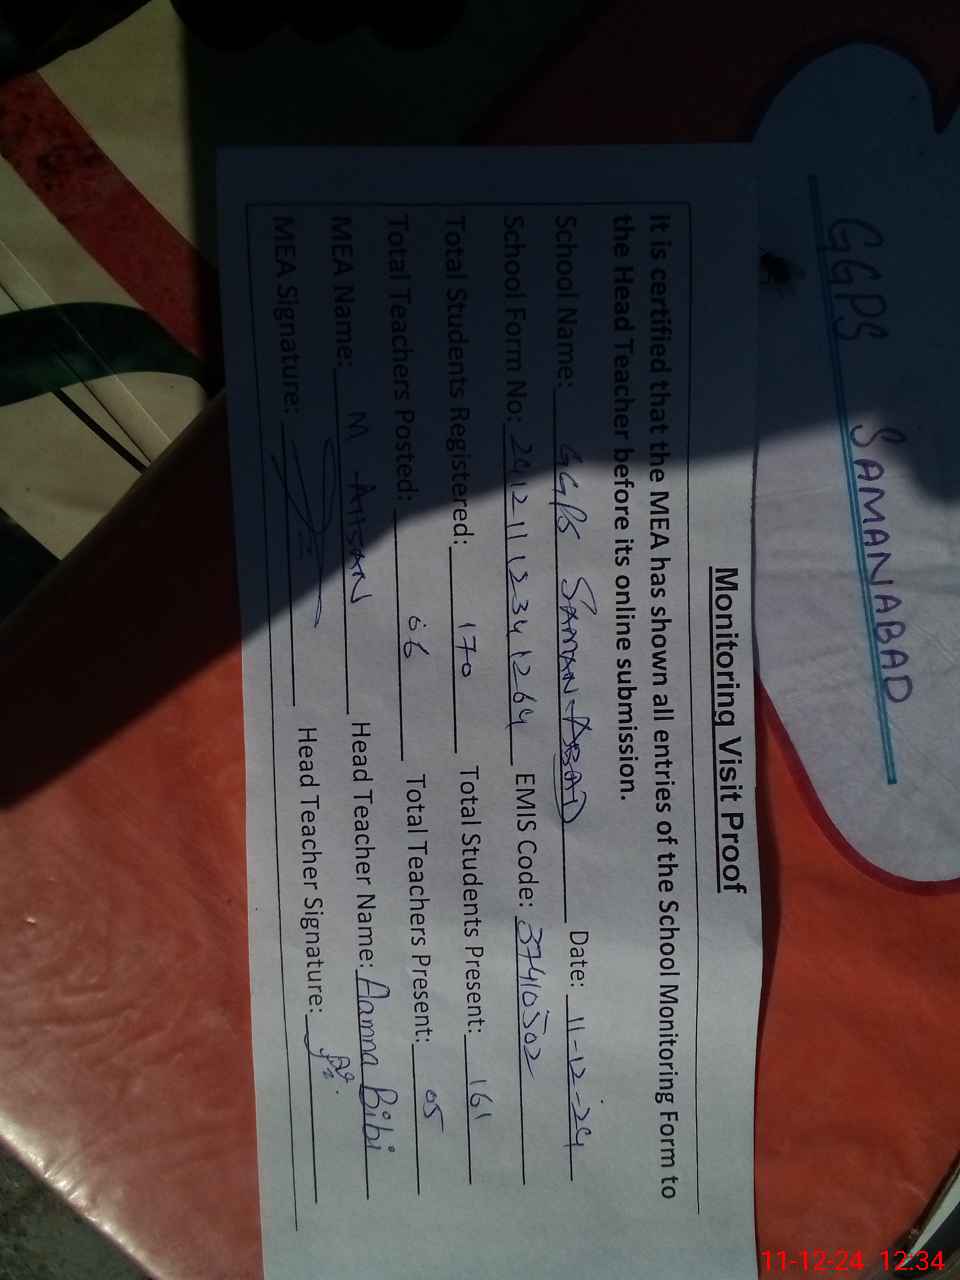 GGPS SAMANABAD
Monitoring Visit Proof
It is certified that the MEA has shown all entries of the School Monitoring Form to
the Head Teacher before its online submission.
School Name: GGPS SAMAN-ABAD Date: 11-12-24
School Form No: 24121112341264 EMIS Code: 37410502
Total Students Registered: 170 Total Students Present: 161
Total Teachers Posted: 06 Total Teachers Present: 05
MEA Name: M-AHSAN Head Teacher Name: Aamna Bibi
MEA Signature: Head Teacher Signature:
11-12-24 12:34